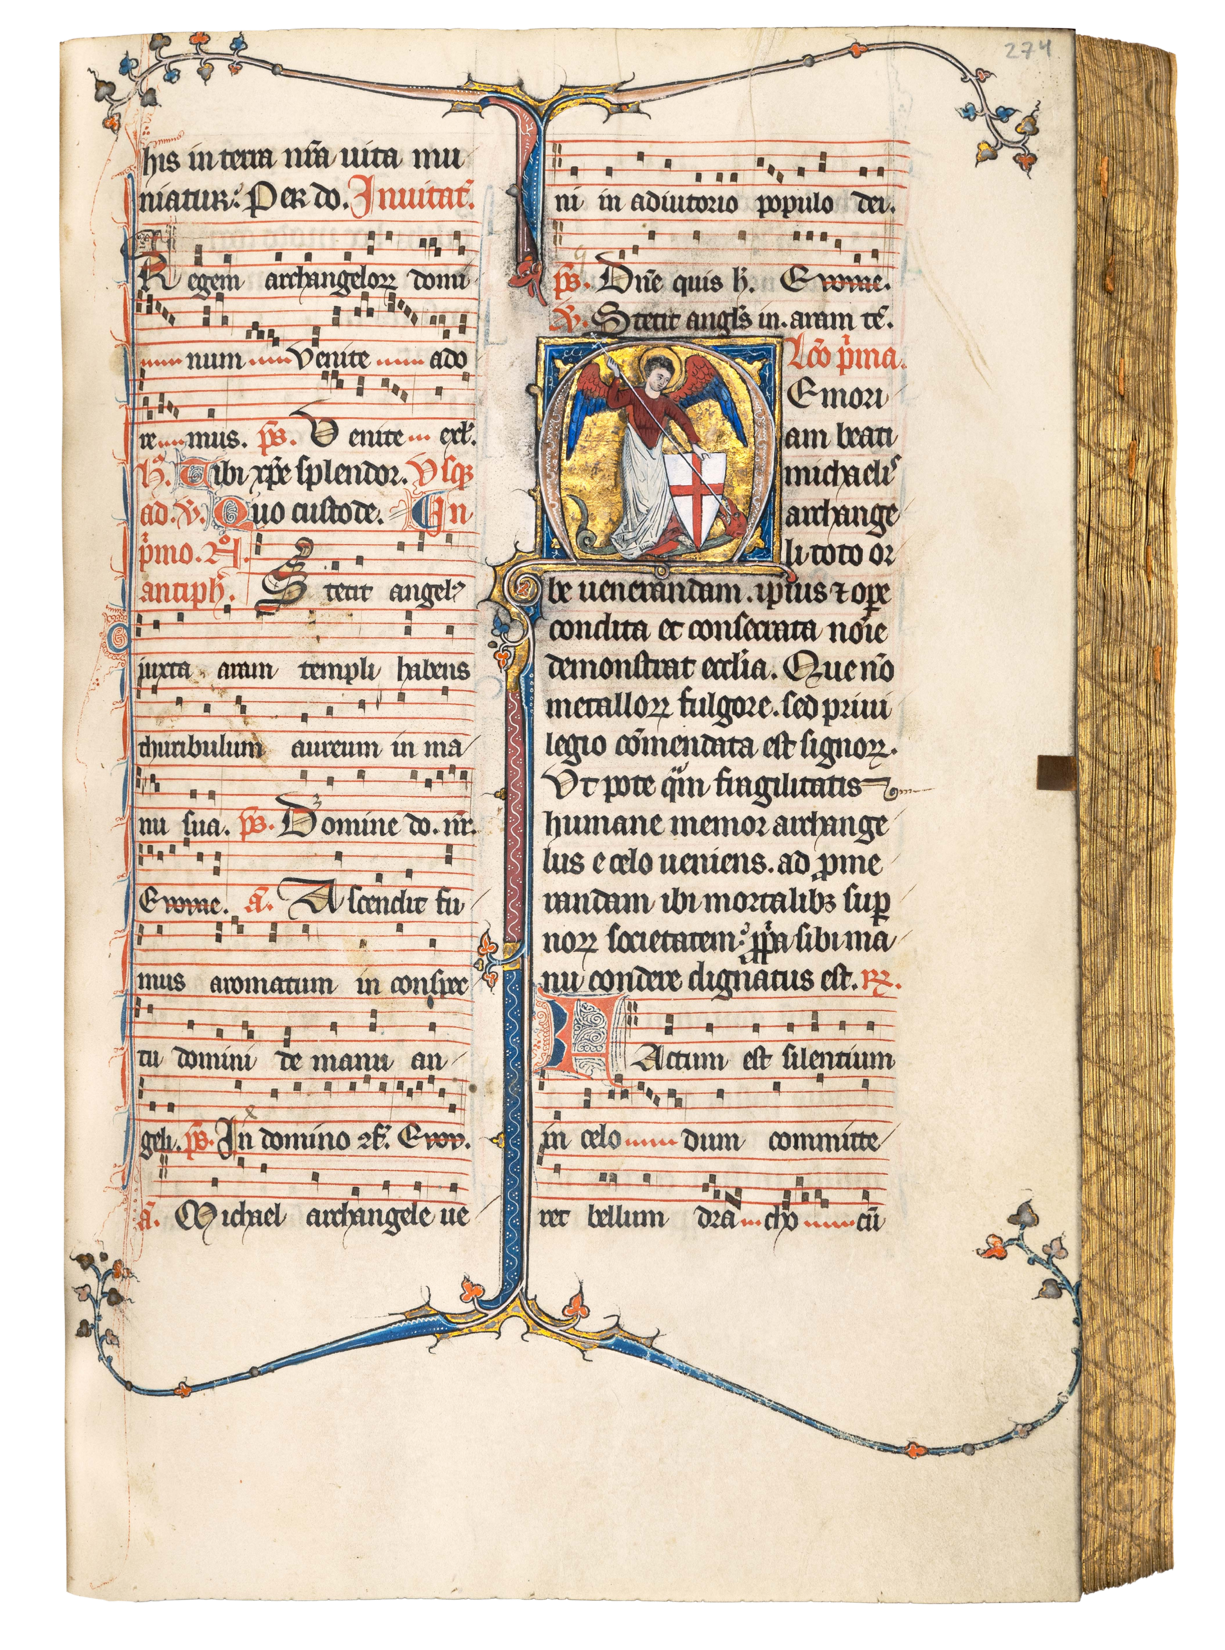 274
his in terra nr̄a uita mu
niatur. Per do. Inuitat.
Regem archangeloꝝ domi
num Venite ado
re mus. ps. Venite exl'.
h'. Tibi xp̄e splendor. Vsqꝫ
ad. v. Quo custode. In
p̄mo. N.
antiph'. Stetit angelꝰ
iuxta aram templi habens
thuribulum aureum in ma
nu sua. ps. Domine do. nr̄.
Evovae. a. Ascendit fu
mus aromatum in conspec
tu domini de manu an
geli. ps. In domino ꝯf. Evov.
a. Michael archangele ue
ni in adiutorio populo dei.
ps. Dn̄e quis h'. Evovae.
v. Stetit angl's in. aram tē.
Lc̄o p̄ma.
Emori
am beati
michaelis
archange
li toto or
be uenerandam. ipsius ⁊ oꝑe
condita et consecrata noīe
demonstrat eccl'ia. Que nō
metalloꝝ fulgore. sed priui
legio cōmendata est signoꝝ.
Vt pote q̄m fragilitatis
humane memor archange
lus e celo ueniens. ad ꝓme
randam ibi mortalibꝫ suꝑ
noꝝ societatem. ꝓpͥa sibi ma
nu condere dignatus est. ꝶ.
Factum est silentium
in celo dum committe
ret bellum dra cho cū